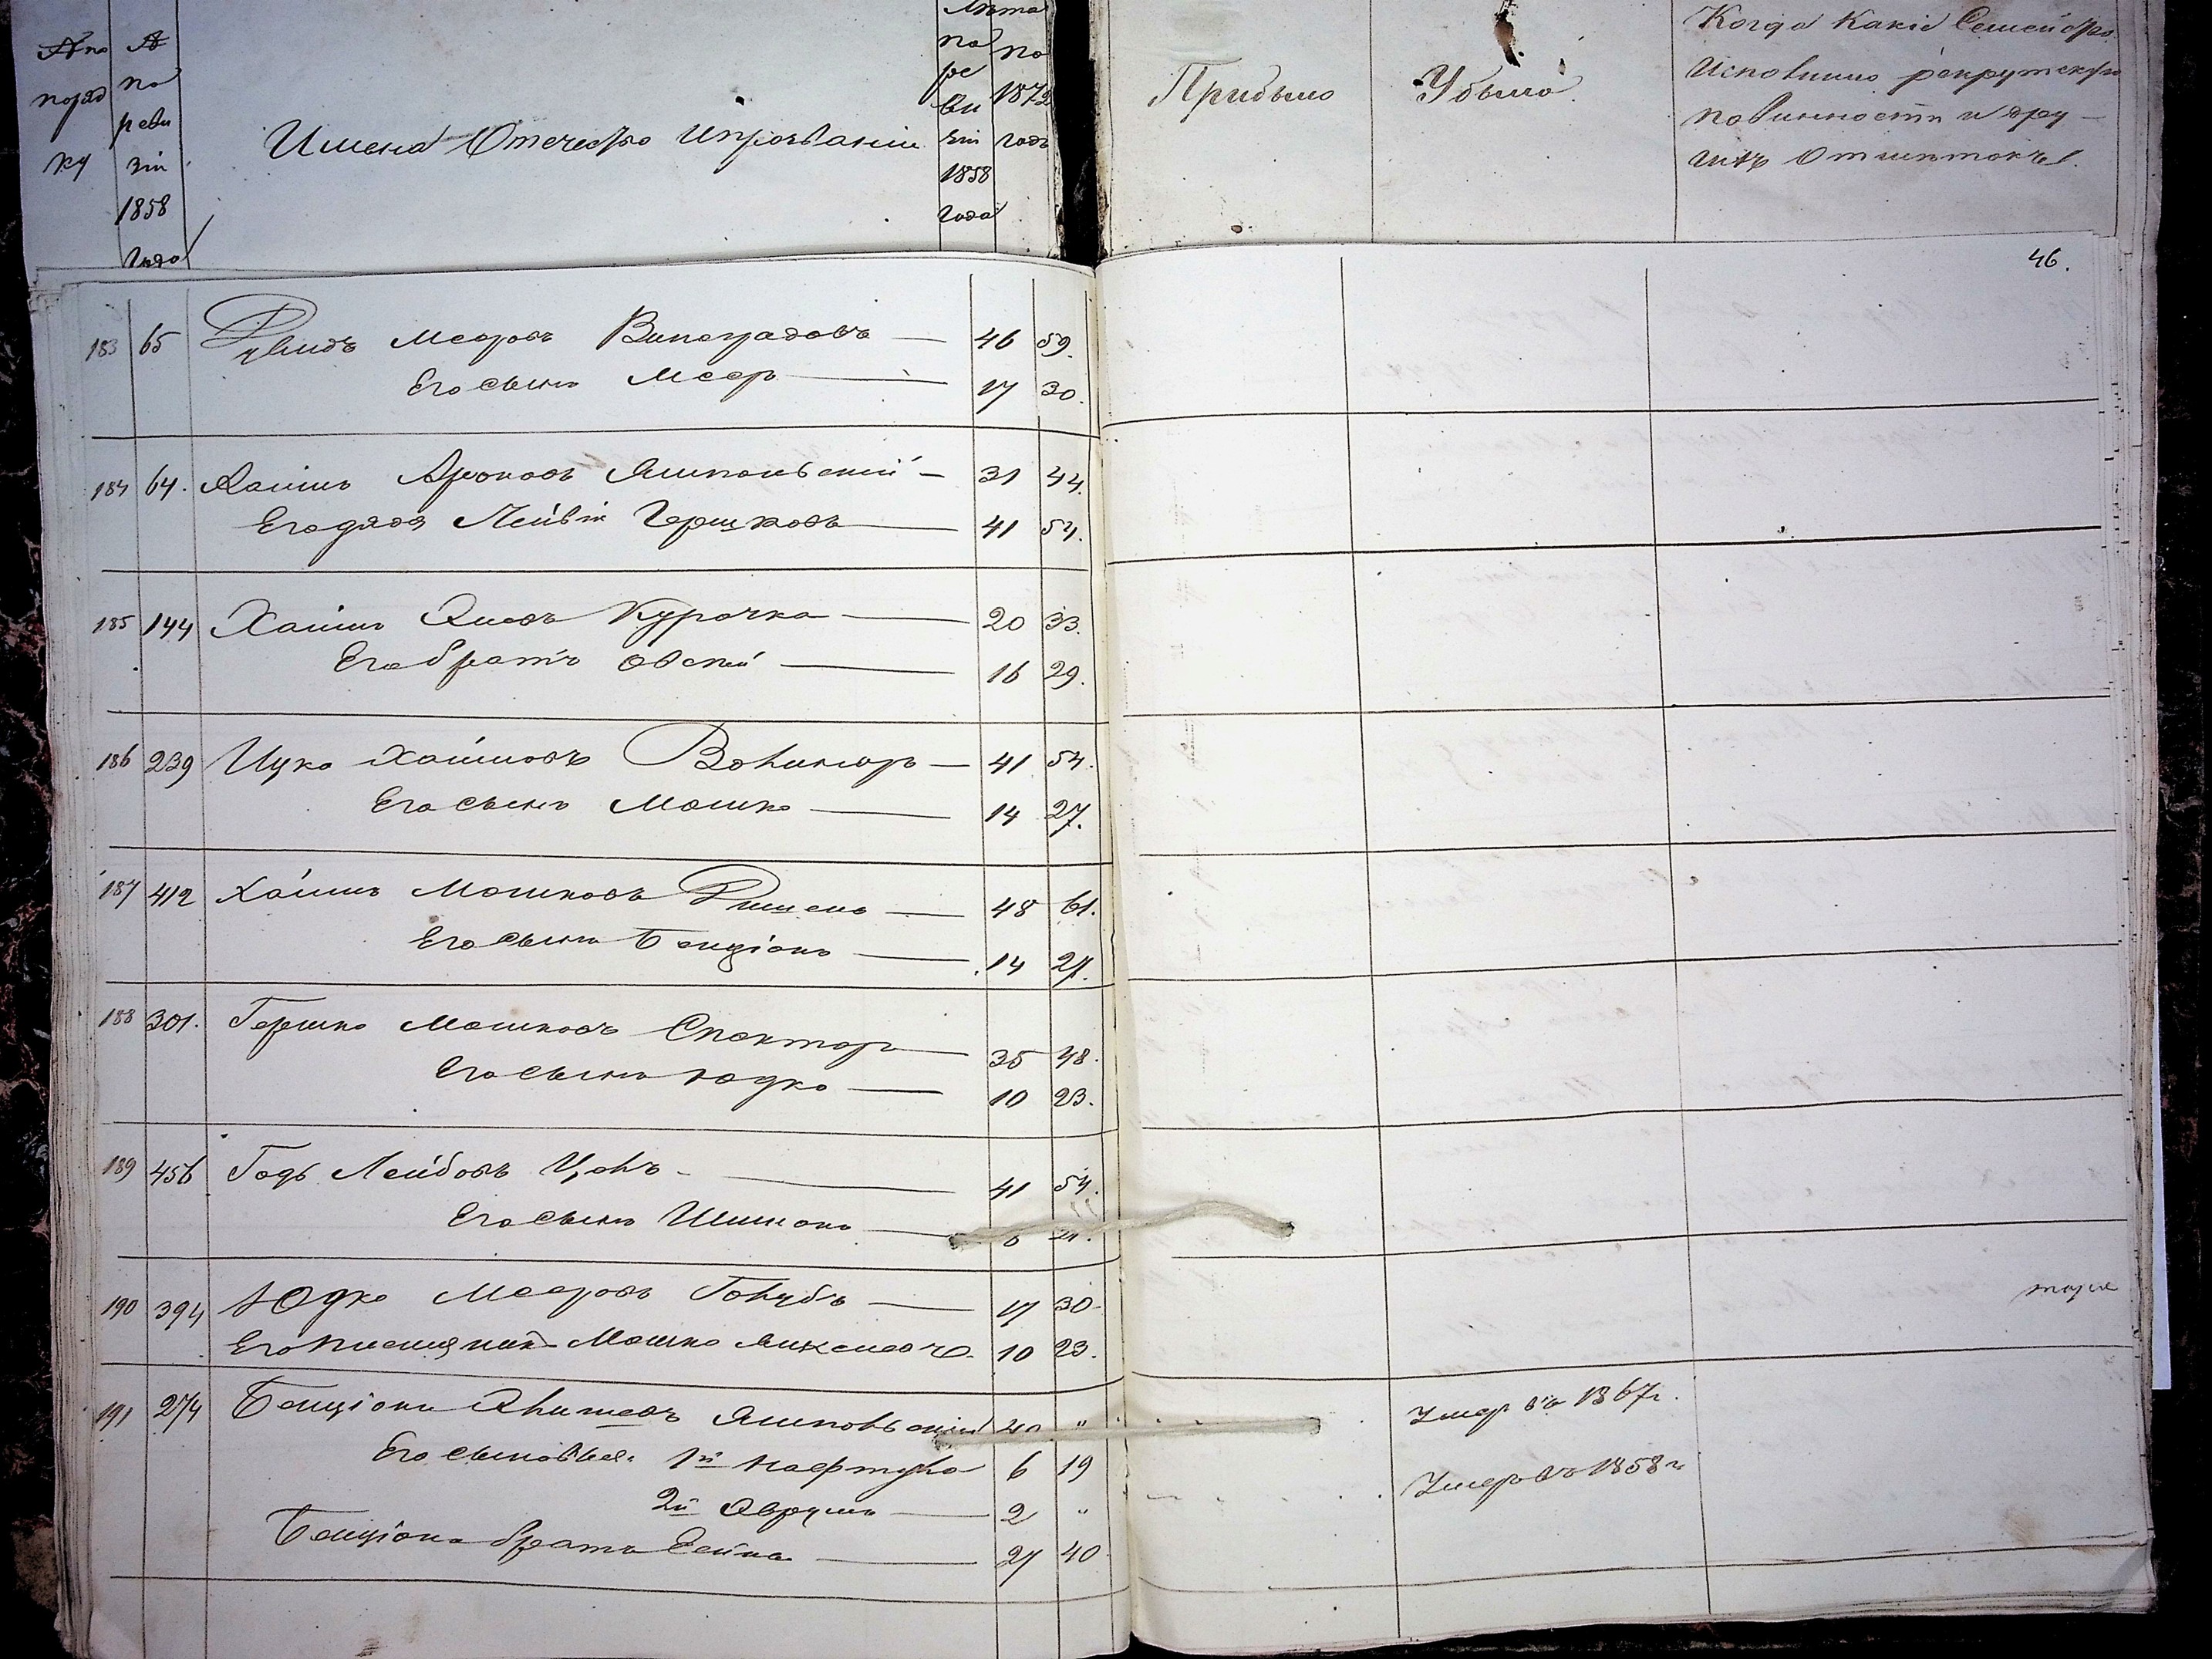 № по поряд ку
№ по реви зіи 1858 года
Имена Отечество и прозваніи
Лѣта
по ре ви зіи 1858 года
по 1872 годъ
Прибыло
Убыло
Когда Какіе Семейство
Исполнило рекрутскую
повинность и дру-
гихъ Отмѣтокъ
46.
183 65 Рувинъ Мееровъ Виноградовъ — 46 59.
Его сынъ Меер — 17 30.
184 64. Хаимъ Ароновъ Ямпольскій — 31 44.
Его дядя Лейвік Гершковъ — 41 54.
185 144 Хаимъ Курочка — 20 33.
Его братъ Овсей — 16 29.
186 239 Ицко Хаимовъ — 41 54.
Его сынъ Мошко — 14 27.
187 412 Хаимъ Мошковъ — 48 61.
Его сынъ Бенціонъ — 14 27.
188 301. Гершко Мошковъ Спекторъ — 35 48.
Его сынъ Юдко — 10 23.
189 456 Годъ Лейбовъ Цолъ — 41 54.
Его сынъ Шимонъ —
190 394 Юдко Мееровъ Голубъ — 17 30
Его племянник Мошко — 10 23.
191 274 Бенціонъ Ямпольскій 40 " Умер въ 1867 г.
Его сыновья 1й Нафтула 6 19
2й Аврумъ — 2 " Умеръ въ 1858 г
Бенціона братъ — 27 40